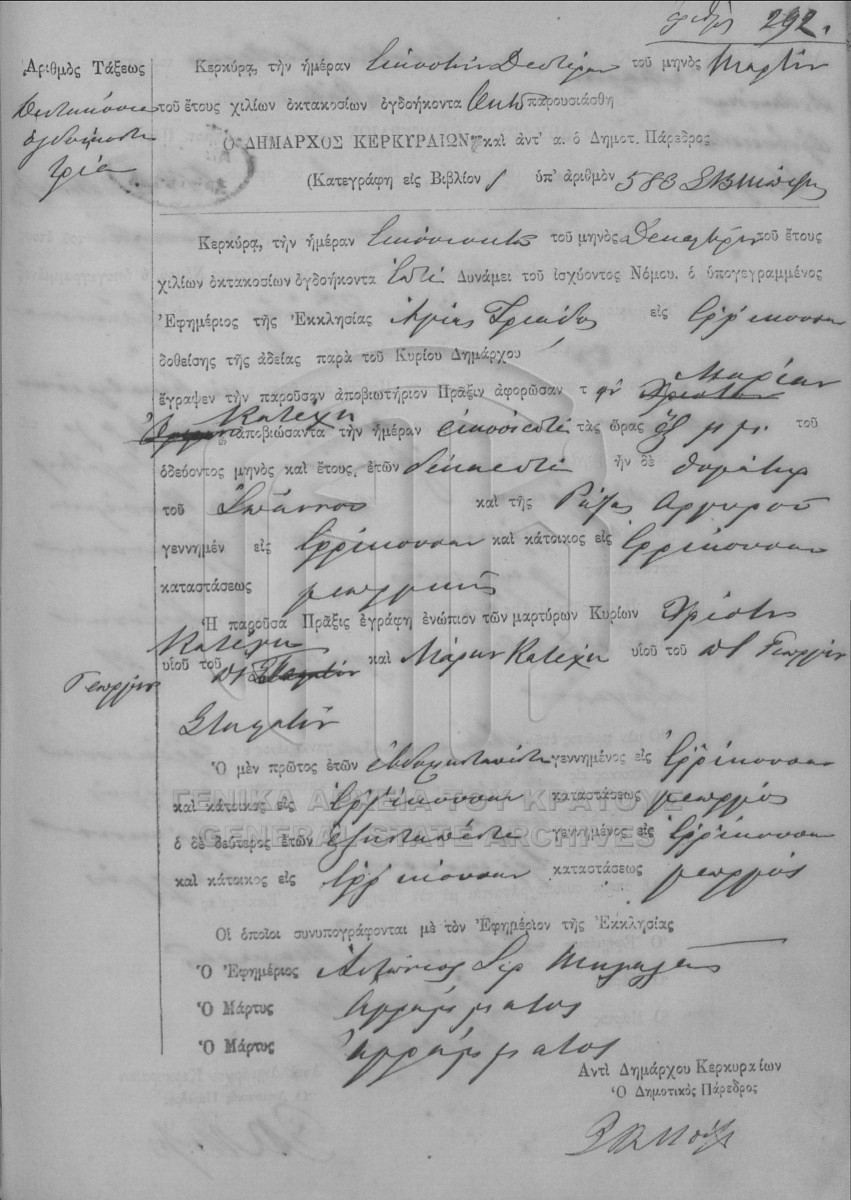 ἀριθ. 292.
Ἀριθμὸς Τάξεως
Πεντακόσια
ὀγδοήκοντα
τρία
Κερκύρᾳ, τὴν ἡμέραν Εἰκοστὴν Δευτέραν τοῦ μηνὸς Μαρτίου
τοῦ ἔτους χιλίων ὀκτακοσίων ὀγδοήκοντα Ὀκτὼ παρουσιάσθη
Ὁ ΔΗΜΑΡΧΟΣ ΚΕΡΚΥΡΑΙΩΝ καὶ ἀντ' α. ὁ Δημοτ. Πάρεδρος
(Κατεγράφη εἰς Βιβλίον 1 ὑπ' ἀριθμὸν 583
Κερκύρᾳ, τὴν ἡμέραν Εἰκοσιοκτὼ τοῦ μηνὸς Δεκεμβρίου τοῦ ἔτους
χιλίων ὀκτακοσίων ὀγδοήκοντα Ἑπτὰ Δυνάμει τοῦ ἰσχύοντος Νόμου. ὁ ὑπογεγραμμένος
Ἐφημέριος τῆς Ἐκκλησίας Ἁγίας Τριάδος εἰς Ἐρρίκουσαν
δοθείσης τῆς ἀδείας παρὰ τοῦ Κυρίου Δημάρχου
ἔγραψεν τὴν παροῦσαν ἀποβιωτήριον Πρᾶξιν ἀφορῶσαν τ ὴν Μαρίαν
Κατέχη ἀποβιώσαντα τὴν ἡμέραν εἰκοσιεπτὰ τὰς ὥρας ἓξ μ.μ. τοῦ
ὁδεύοντος μηνὸς καὶ ἔτους, ἐτῶν δεκαεπτὰ ἦν δὲ θυγάτηρ
τοῦ Ἰωάννου καὶ τῆς Ρόζας Αργυροῦ
γεννημέν εἰς Ἐρρίκουσαν καὶ κάτοικος εἰς Ἐρρίκουσαν
καταστάσεως γεωργικῆς
Ἡ παροῦσα Πρᾶξις ἐγράφη ἐνώπιον τῶν μαρτύρων Κυρίων Χρίστου
Κατέχη
υἱοῦ τοῦ ποτὲ καὶ Μάρκου Κατέχη υἱοῦ τοῦ ποτὲ Γεωργίου
Γεωργίου
Σταματίου
Ὁ μὲν πρῶτος ἐτῶν ἑβδομηκονταπέντε γεννημένος εἰς Ἐρρίκουσαν
καὶ κάτοικος εἰς Ἐρρίκουσαν καταστάσεως γεωργὸς
ὁ δὲ δεύτερος ἐτῶν ἑξηνταπέντε γεννημένος εἰς Ἐρρίκουσαν
καὶ κάτοικος εἰς Ἐρρίκουσαν καταστάσεως γεωργὸς
Οἱ ὁποῖοι συνυπογράφονται μὲ τὸν Ἐφημέριον τῆς Ἐκκλησίας
Ὁ Ἐφημέριος Ἀντώνιος
Ὁ Μάρτυς Ἀγράμματος
Ὁ Μάρτυς Ἀγράμματος
Αντὶ Δημάρχου Κερκυραίων
Ὁ Δημοτικὸς Πάρεδρος
ΓΕΝΙΚΑ ΑΡΧΕΙΑ ΤΟΥ ΚΡΑΤΟΥΣ
GENERAL STATE ARCHIVES